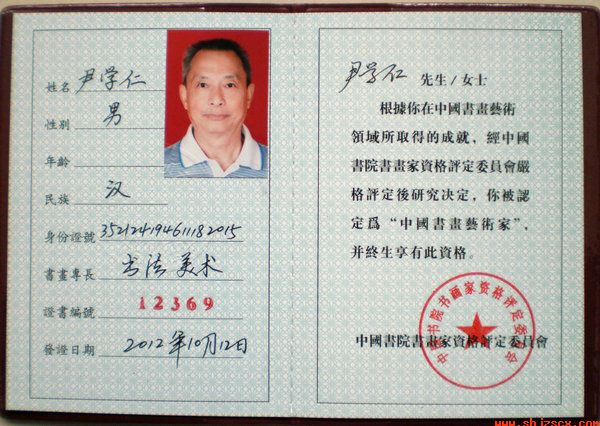 姓名 尹学仁
性别 男
年齡
民族 汉
身份證號 352124194611182015
書畫專長 书法 美术
證書編號 12369
發證日期 2012年10月12日
尹学仁 先生/女士
根據你在中國書畫藝術
領域所取得的成就，經中國
書院書畫家資格評定委員會嚴
格評定後研究决定，你被認
定爲“中國書畫藝術家”，
并終生享有此資格。
中国书院书画家资格评定委员会
中國書院書畫家資格評定委員會
www.shjzscx.com